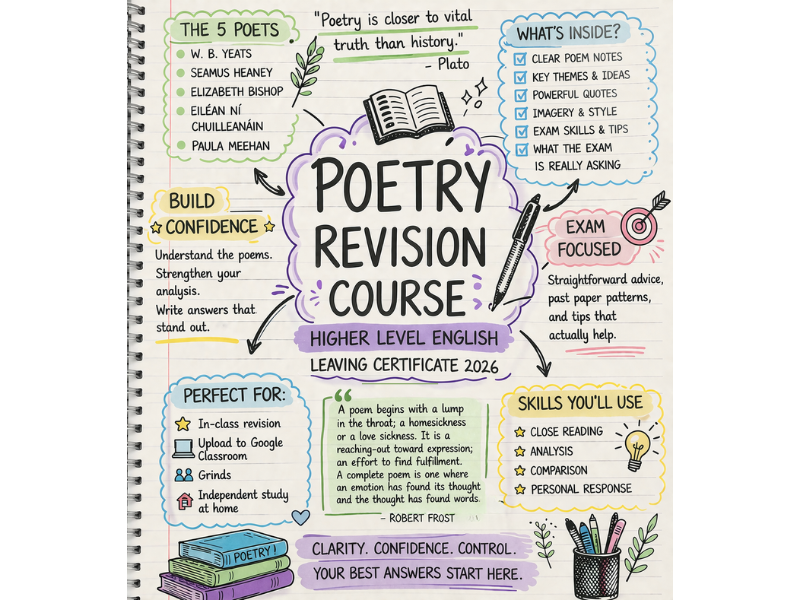 THE 5 POETS
W. B. YEATS
SEAMUS HEANEY
ELIZABETH BISHOP
EILÉAN NÍ
CHUILLEANÁIN
PAULA MEEHAN
"Poetry is closer to vital
truth than history."
- Plato
WHAT'S INSIDE?
CLEAR POEM NOTES
KEY THEMES & IDEAS
POWERFUL QUOTES
IMAGERY & STYLE
EXAM SKILLS & TIPS
WHAT THE EXAM
IS REALLY ASKING
POETRY
REVISION
COURSE
HIGHER LEVEL ENGLISH
LEAVING CERTIFICATE 2026
BUILD
CONFIDENCE
Understand the poems.
Strengthen your
analysis.
Write answers that
stand out.
EXAM
FOCUSED
Straightforward advice,
past paper patterns,
and tips that
actually help.
PERFECT FOR:
In-class revision
Upload to Google
Classroom
Grinds
Independent study
at home
"
A poem begins with a lump
in the throat; a homesickness
or a love sickness. It is a
reaching-out toward expression;
an effort to find fulfillment.
A complete poem is one where
an emotion has found its thought
and the thought has found words.
- ROBERT FROST
SKILLS YOU'LL USE
CLOSE READING
ANALYSIS
COMPARISON
PERSONAL RESPONSE
POETRY!
CLARITY. CONFIDENCE. CONTROL.
YOUR BEST ANSWERS START HERE.